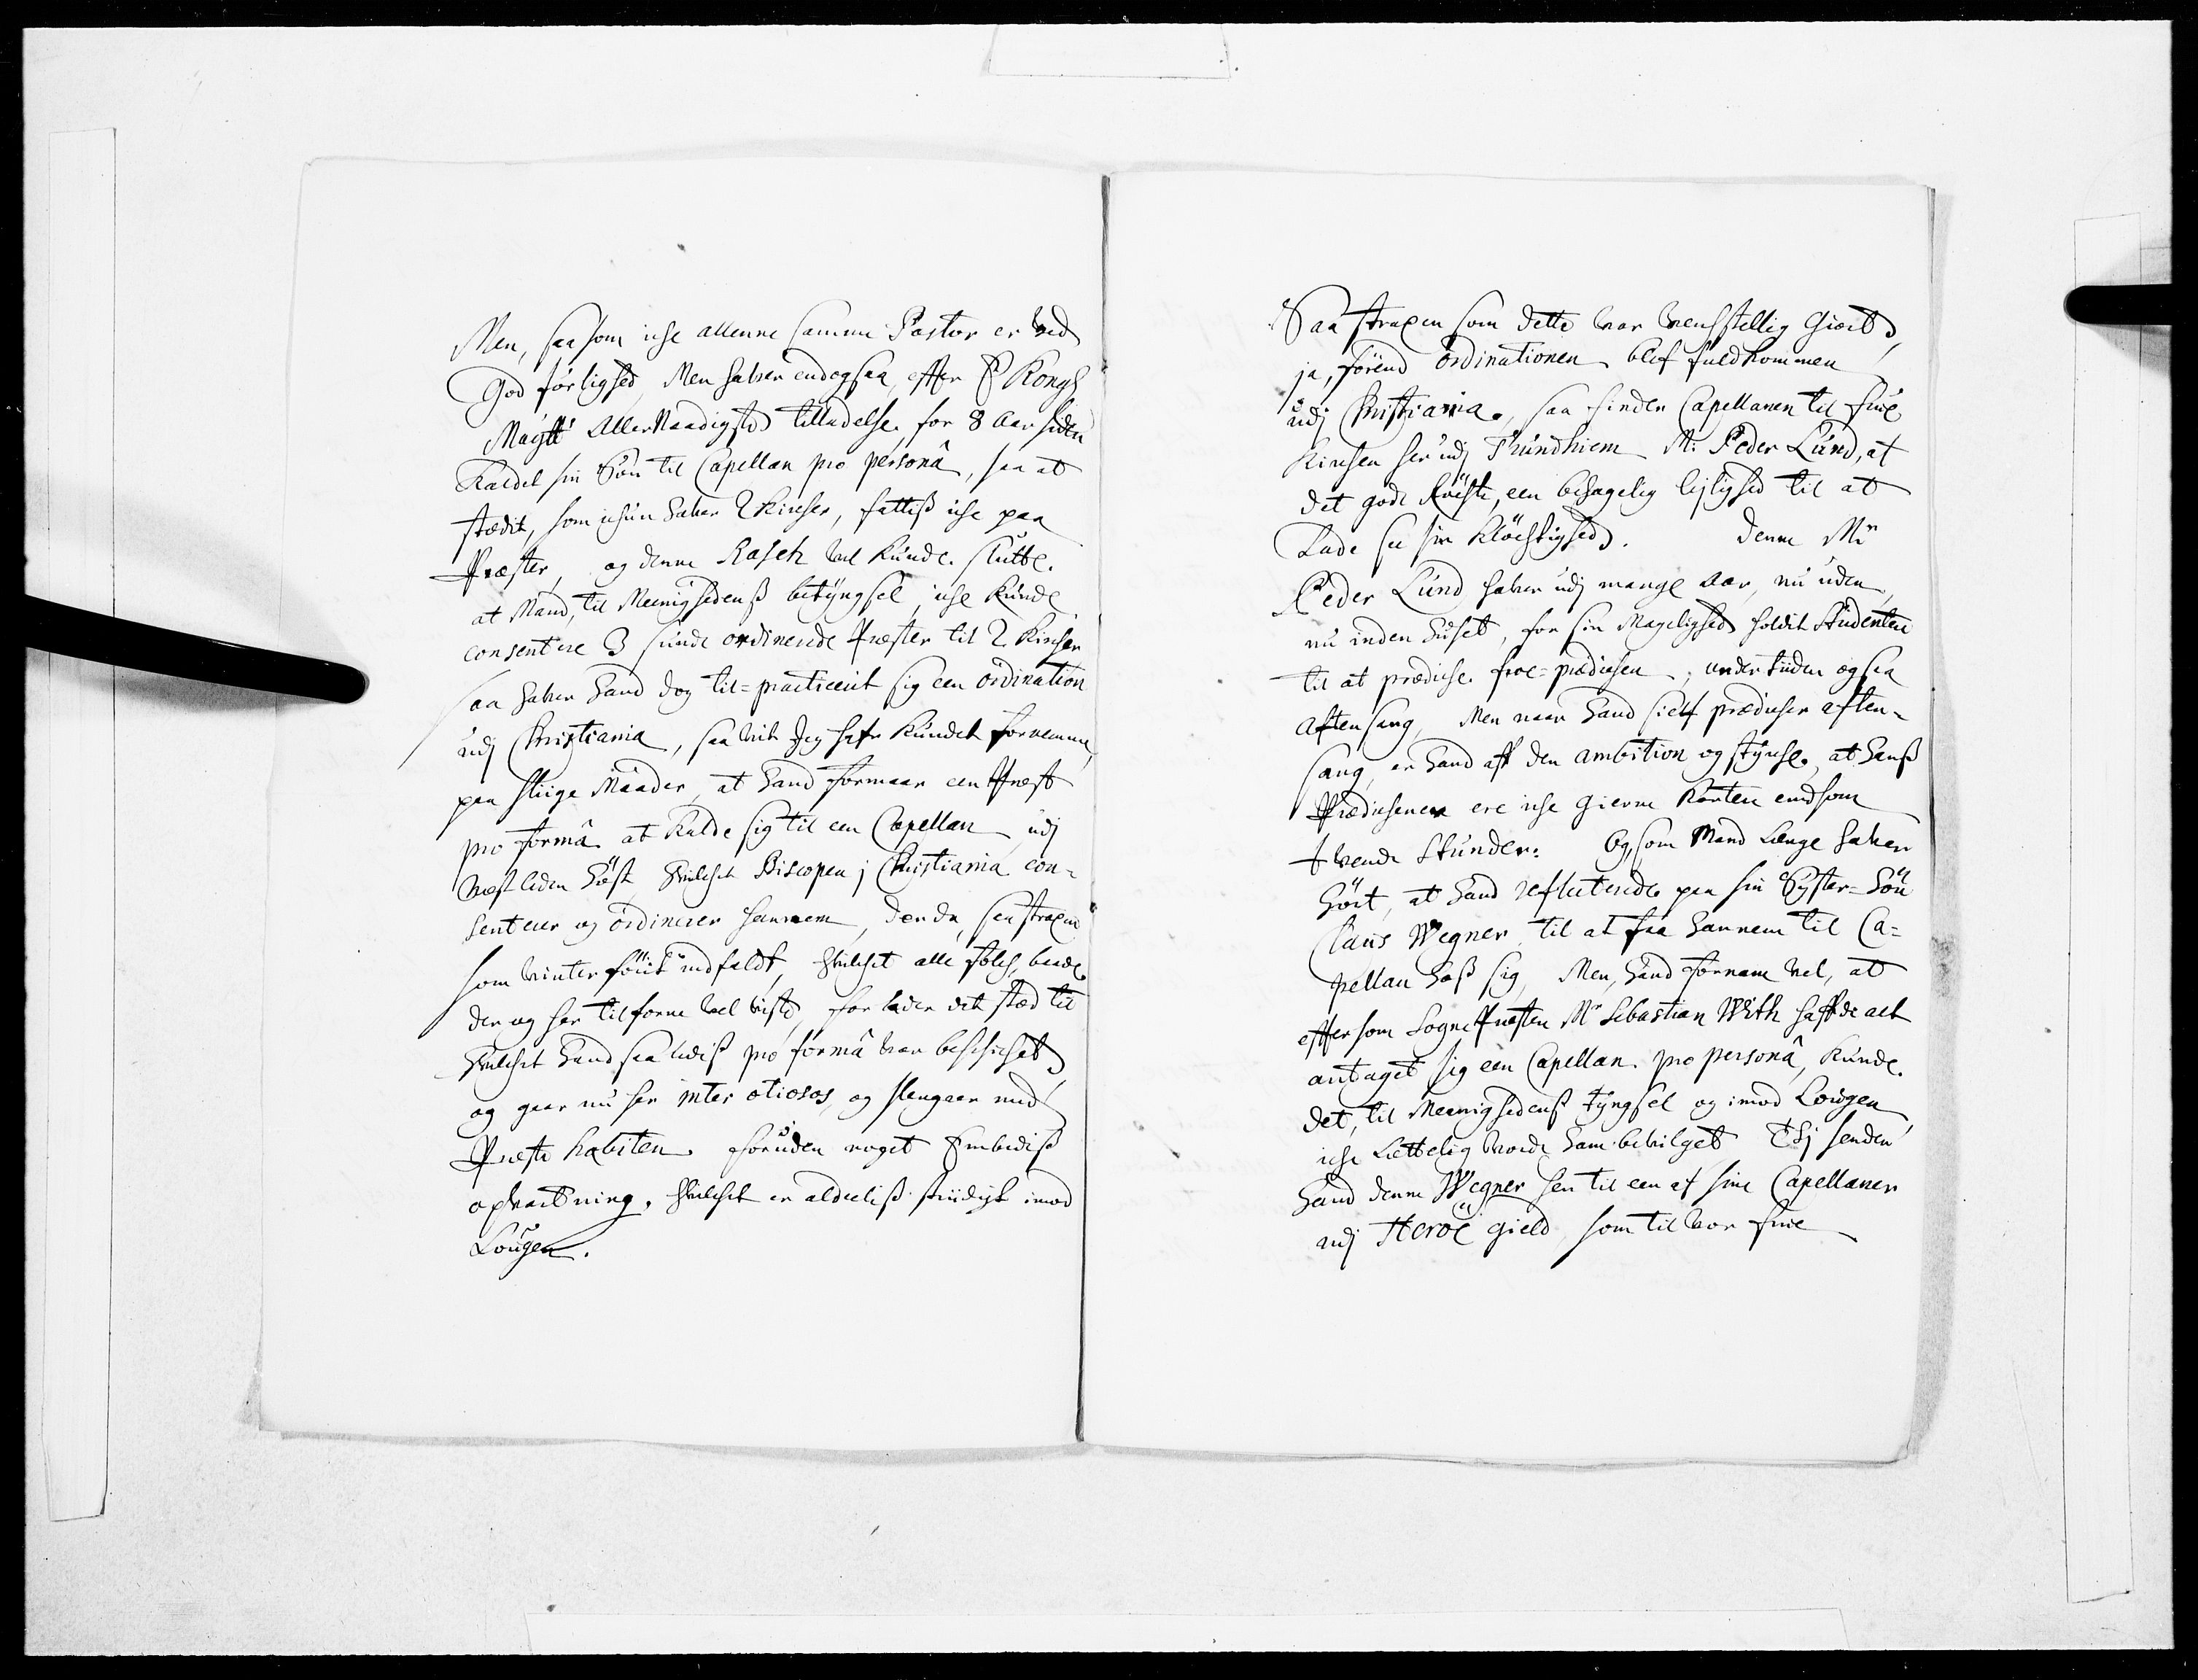 Men, saa som iche allenne samme Pastor er ved
God førlighed, Men haver endogsaa, efter E Kongl
Maytt AllerNaadigste tilladelse, for 8 Aar siden
Kaldet sin Søn til Capellan pro personâ, saa at
stædit, som ichun haver 2 Kircher, fattiss iche paa
Præster, og denne Rasch vel kunde slutte
at Mand, til Meenighedenss betyngsel, iche kunde
consentere 3 sunde ordinerede Præster til 2 Kircher
saa haver Hand dog til-practiceret sig een ordination
udj Christiania, saa vit Jeg hafr kundet fornemme,
paa sliige Maader, at Hand formaar een Præst
pro formâ at kalde sig til een Capellan, udj
næst leden Høst, Hvilchet Biscopen j Christiania con-
senterer og ordinerer hannem, der da, saa straxen
som vinterføret indfaldt, Hvilchet alle folch, baade
der og her tilforne vel viste, forlader det stæd til
Hvilchet Hand saaledis pro formâ var beschichet,
og gaar nu her inter otiosos, og slengaar med
Præste habiten, foruden noget Embediss
opvartning, Hvilchet er aldeeliss striidigt imod
Lougen.
Saa straxen som dette var verchstellig Giørt,
ja, førend ordinationen blef fuldkommen
udj Christiania, saa finder Capellanen til frue
Kirchen her udj Trundhiem Mr: Peder Lund, at
det gode , een behagelig lejlighed til at
Lade see sin Kløchtighed. Denne Mr
Peder Lund haver udj mange Aar, nu uden
nu inden Huset, for sin Magelighed holdet Studentere
til at prædiche froe-prædichen, undertiiden ogsaa
aftensang, Men naar Hand sielf prædicher aften-
sang, er Hand aff den ambition og styrche, at Hanss
Prædichener ere iche gierne korten end som
tvende Stunder. Og, som Mand Lenge haver
Hørt, at Hand reflecterede paa sin Syster-Søn
Claus Wegner, til at faa hannem til Ca-
pellan Hoss sig, Men, Hand fornam vel, at
eftersom SognePræsten Mr Sebastian With haffde alt
antaget sig een Capellan pro personâ, kunde
det, til Meenighedenss tyngsel og imod Lougen
iche Lættelig vorde ham bevilget Thj sender
Hand denne Wegner hen til een af sine Capellaner
udj Herøe gield, som til vor frue